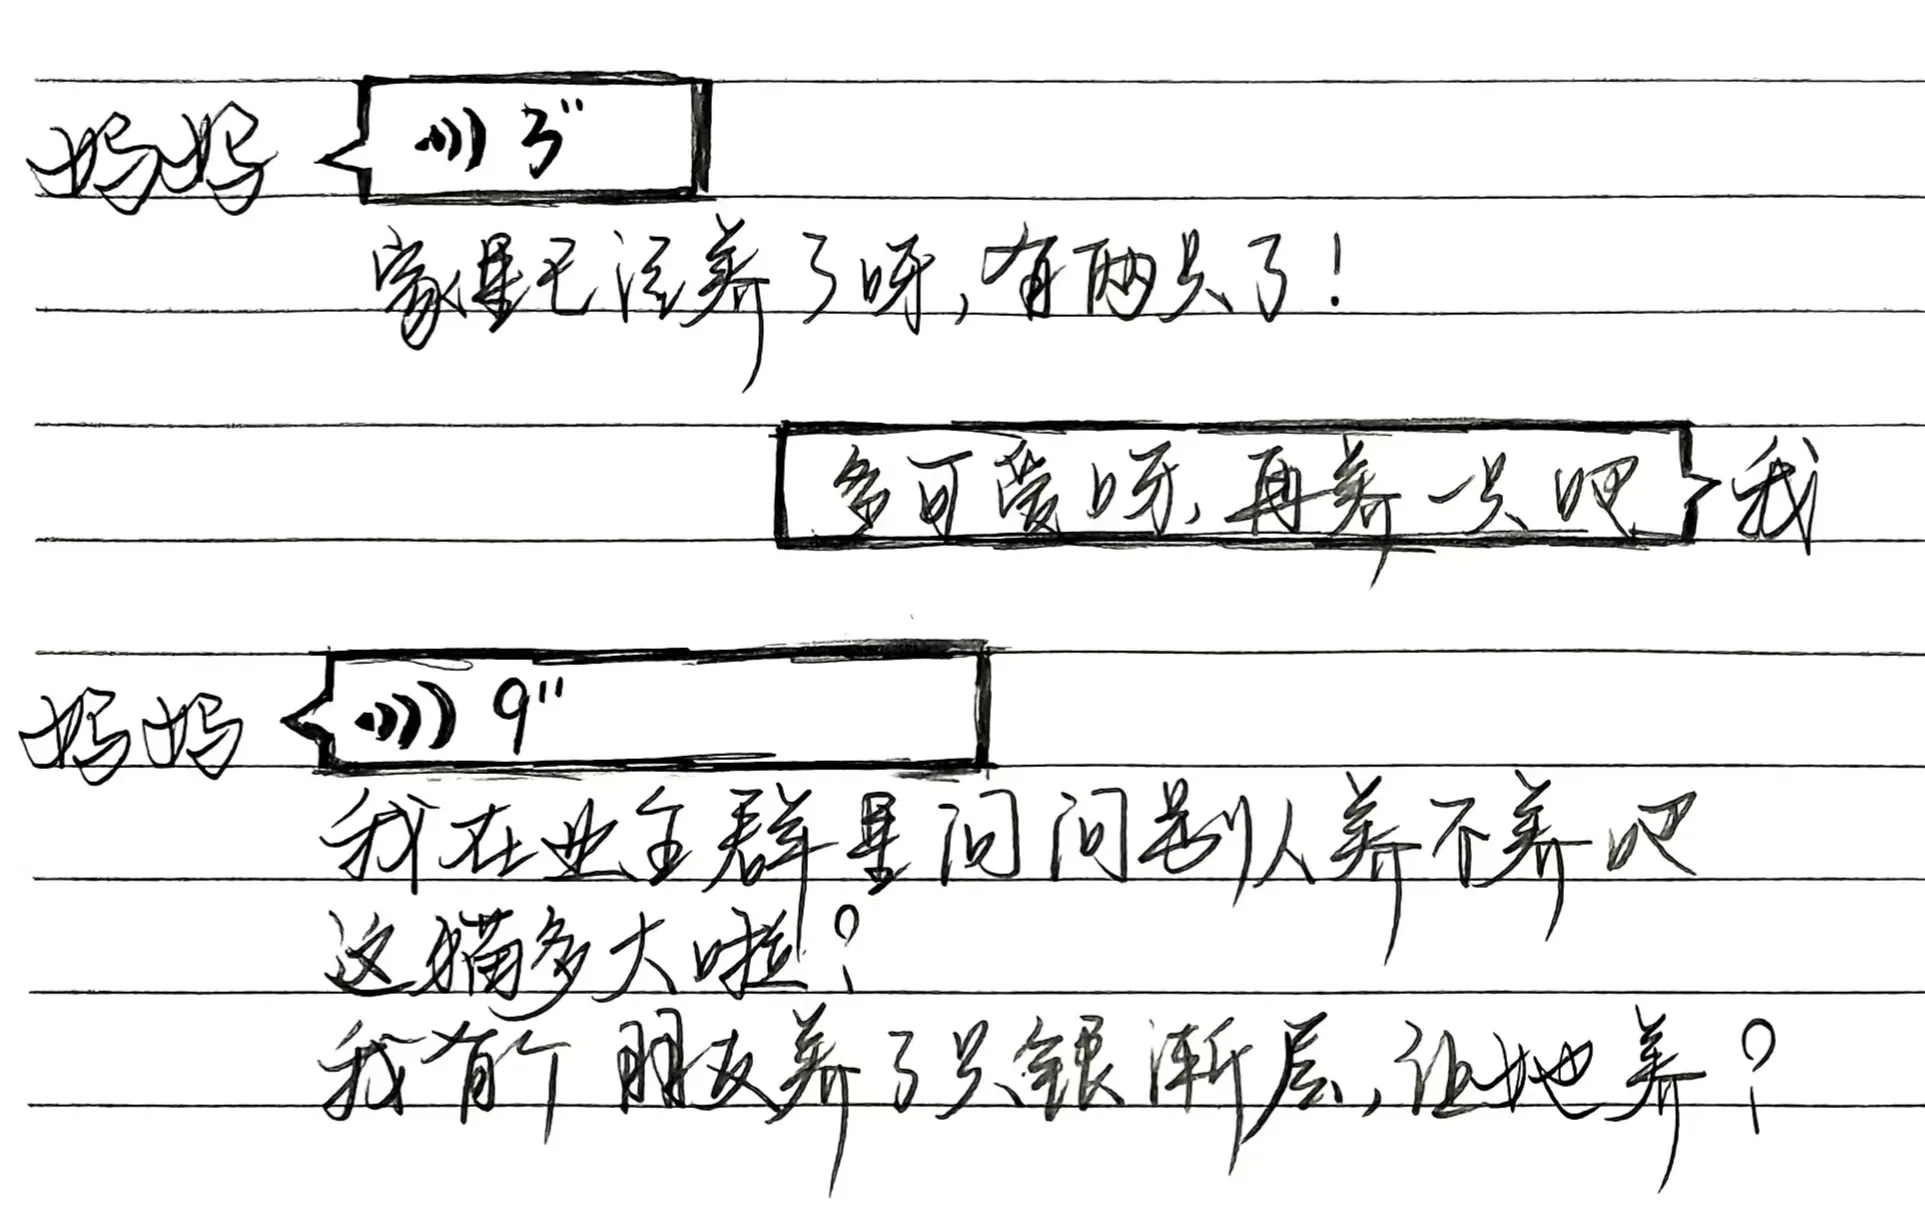 妈妈 3"
家里无法养了呀,有两只了!
多可爱呀,再养一只吧 我
妈妈 9"
我在业主群里问问别人养不养吧
这猫多大啦?
我有个朋友养了只银渐层,让她养?